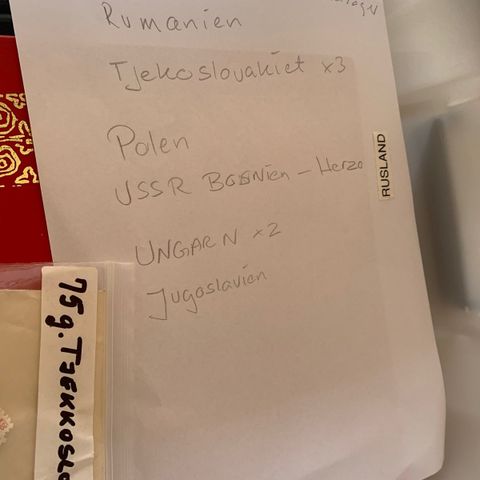 Rumænien
Tjekoslovakiet x3
Polen
USSR Bosnien - Herzo
UNGARN x2
Jugoslavien
RUSLAND
75g. TJEKKOSLO